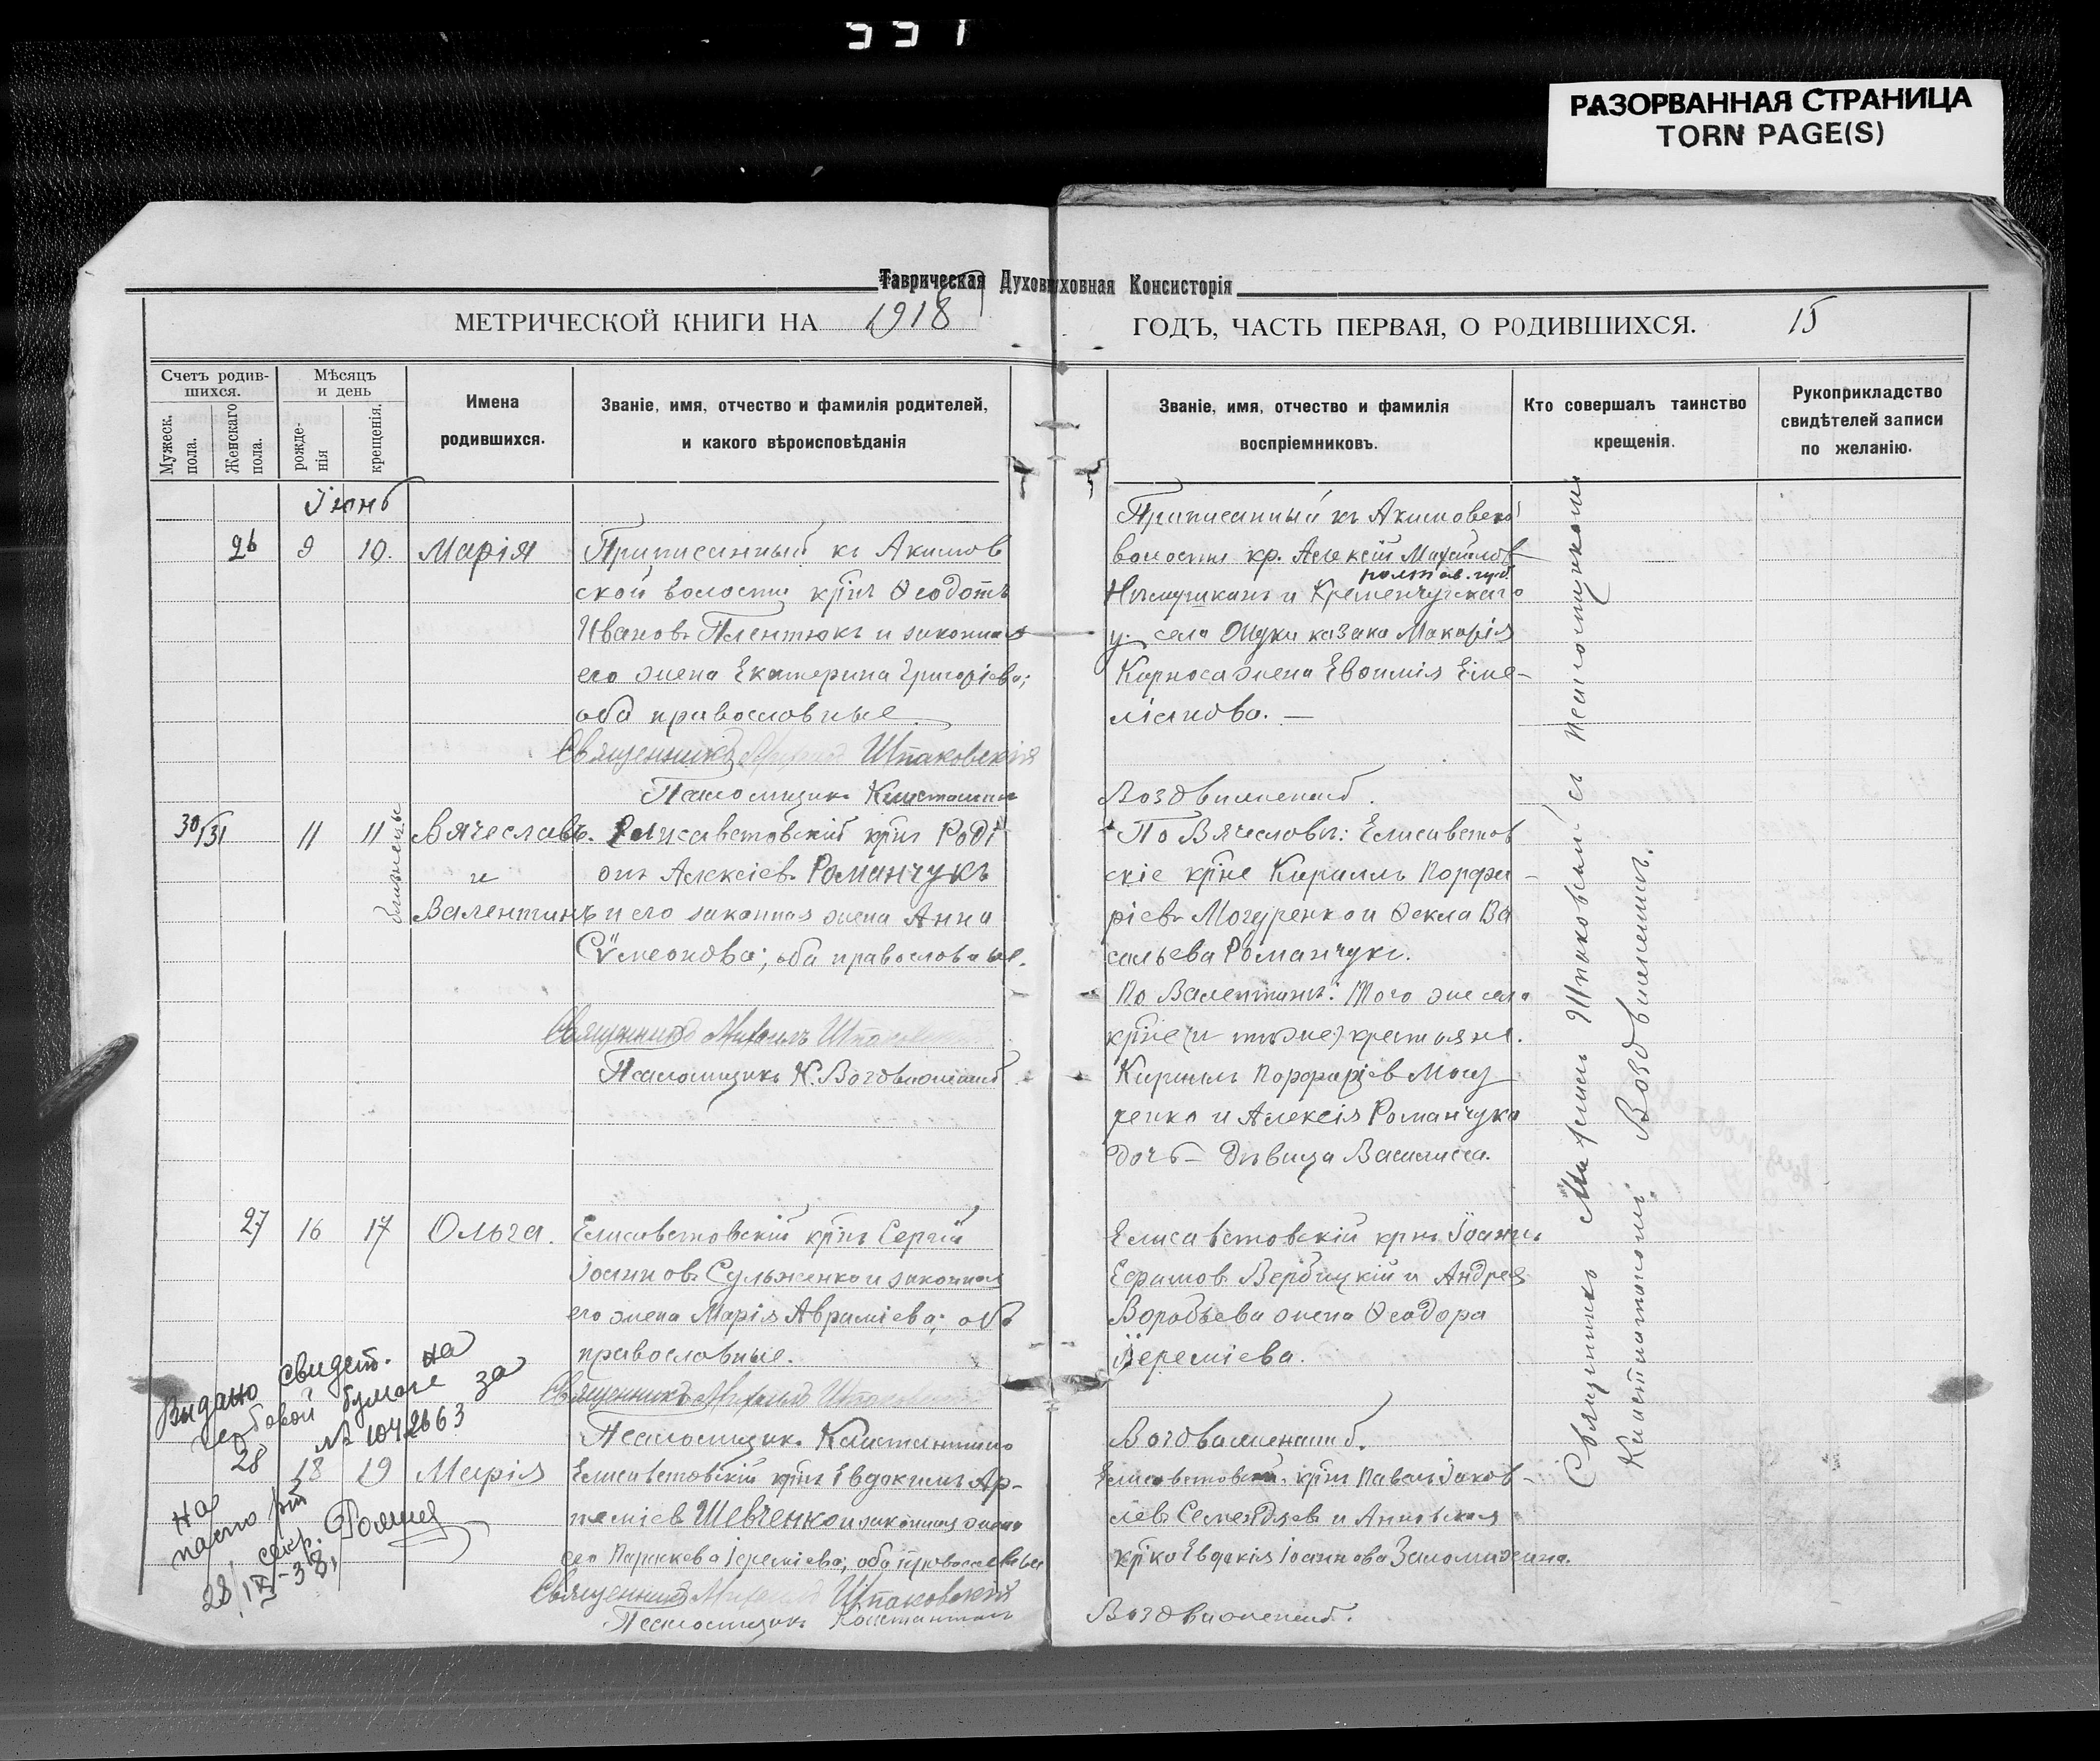 551
РАЗОРВАННАЯ СТРАНИЦА
TORN PAGE(S)
Таврическая Духовная Консисторія
МЕТРИЧЕСКОЙ КНИГИ НА 1918
ГОДЪ, ЧАСТЬ ПЕРВАЯ, О РОДИВШИХСЯ. 15
Счетъ родив-
шихся.
Мужеск.
пола.
Женскаго
пола.
Мѣсяцъ
и день
рожде-
нія
крещенія.
Имена
родившихся.
Званіе, имя, отчество и фамилія родителей,
и какого вѣроисповѣданія
Званіе, имя, отчество и фамилія
воспріемниковъ.
Кто совершалъ таинство
крещенія.
Рукоприкладство
свидѣтелей записи
по желанію.
Іюнь
26 9 10. Марія
Приписанный къ Акимов
ской волости крн͠ъ Ѳеодотъ
Ивановъ Плентюкъ и законная
его жена Екатерина Григоріева;
оба православные.
Священникъ Михаилъ Шпаковскій
Псаломщикъ Константинъ
Приписанный къ Акимовской
волости кр. Алексій Михайлов
полтав. губ.
и Кременчугскаго
у. села казака Макарія
Карноса жена Евѳимія Еме-
ліанова. —
Воздвиженскій.
30/31 11 11 Вячеславъ.
и
Валентинъ
близнецы
Елисаветовскій крн͠ъ Роді
онъ Алексіевъ Романчукъ
и его законная жена Анна
Сѵмеонова; оба православные.
Священникъ Михаилъ Шпаковскій
Псаломщикъ К. Воздвиженскій
По Вячеславѣ: Елисаветов
скіе крн͠е Кириллъ Порфи-
ріевъ Могуренко и Ѳекла Ва
сильева Романчукъ.
По Валентинѣ: Того же села
крн͠е (и тѣже) крестьяне.
Кириллъ Порфиріев Могу
ренко и Алексія Романчука
дочь – дѣвица Василисса.
27 16 17 Ольга.
Елисаветовскій крн͠ъ Сергій
Іоанновъ Сульженко и законная
его жена Марія Авраміева; оба
православные.
Священникъ Михаилъ Шпаковскій
Псаломщикъ Константинъ
Елисаветовскій крн͠ъ Іоаннъ
Ефимовъ Вербицкій и Андрея
Воробьева жена Ѳеодора
Іереміева.
Воздвиженскій.
28 18 19 Марія
Елисаветовскій крн͠ъ Евдокимъ Ар-
теміев Шевченко и законная жена
его Параскева Іереміева; оба православные
Священникъ Михаилъ Шпаковскій
Псаломщикъ Константинъ
Елисаветовскій крн͠ъ Павелъ Іаков-
левъ Семендяев и
кр͠ка Евдокія Іоаннова
Воздвиженскій.
Священникъ Михаилъ Шпаковскій съ псаломщикомъ
Константиномъ Воздвиженскимъ.
Выдано свидет. на
гербовой бумаге за
№ 1042663
на
паспорт
секр.
28/IX-38